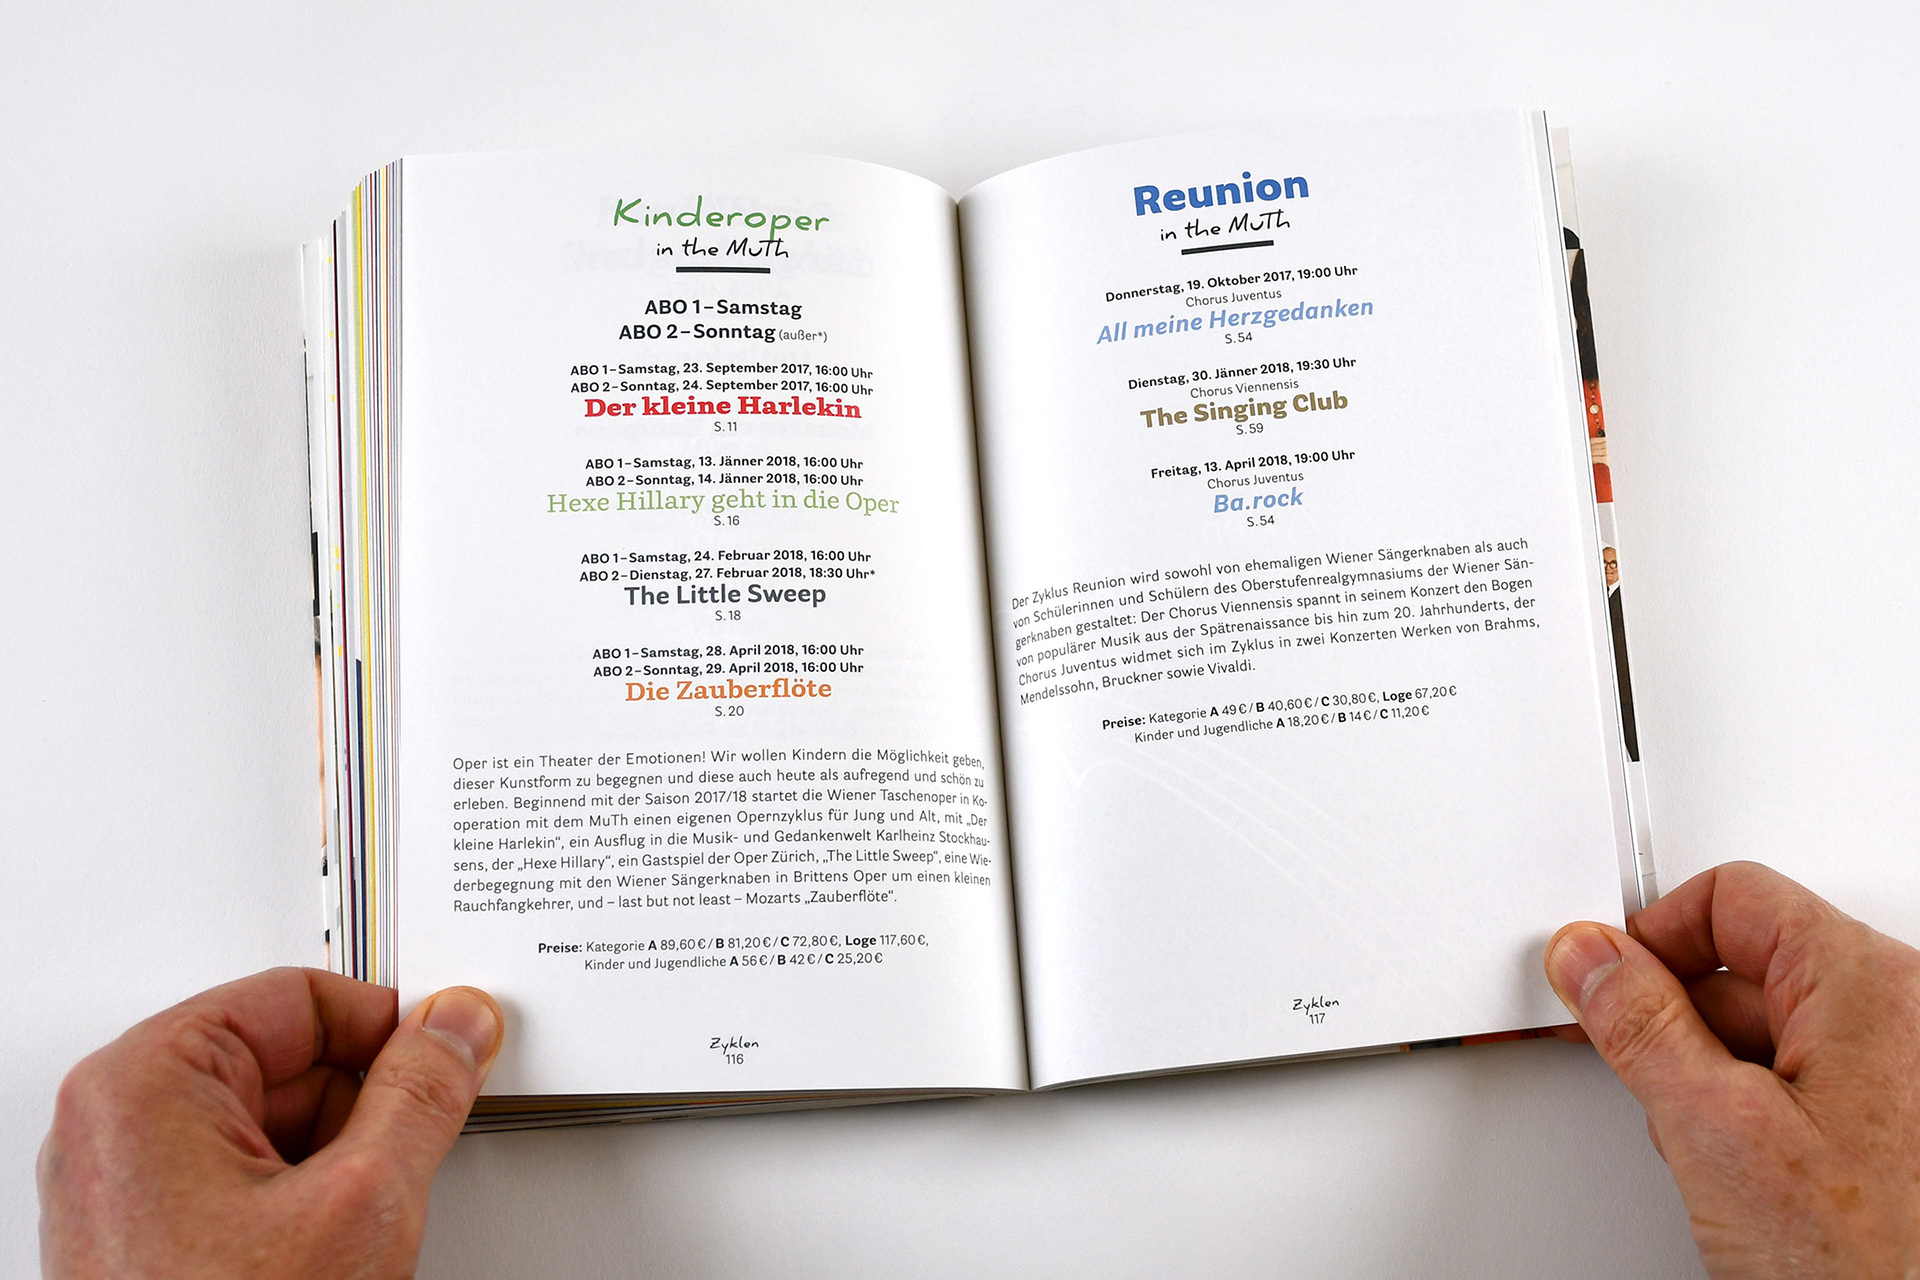 Kinderoper
in the MuTh
ABO 1 – Samstag
ABO 2 – Sonntag (außer*)
ABO 1 – Samstag, 23. September 2017, 16:00 Uhr
ABO 2 – Sonntag, 24. September 2017, 16:00 Uhr
Der kleine Harlekin
S. 11
ABO 1 – Samstag, 13. Jänner 2018, 16:00 Uhr
ABO 2 – Sonntag, 14. Jänner 2018, 16:00 Uhr
Hexe Hillary geht in die Oper
S. 16
ABO 1 – Samstag, 24. Februar 2018, 16:00 Uhr
ABO 2 – Dienstag, 27. Februar 2018, 18:30 Uhr*
The Little Sweep
S. 18
ABO 1 – Samstag, 28. April 2018, 16:00 Uhr
ABO 2 – Sonntag, 29. April 2018, 16:00 Uhr
Die Zauberflöte
S. 20
Oper ist ein Theater der Emotionen! Wir wollen Kindern die Möglichkeit geben,
dieser Kunstform zu begegnen und diese auch heute als aufregend und schön zu
erleben. Beginnend mit der Saison 2017/18 startet die Wiener Taschenoper in Ko-
operation mit dem MuTh einen eigenen Opernzyklus für Jung und Alt, mit „Der
kleine Harlekin“, ein Ausflug in die Musik- und Gedankenwelt Karlheinz Stockhau-
sens, der „Hexe Hillary“, ein Gastspiel der Oper Zürich, „The Little Sweep“, eine Wie-
derbegegnung mit den Wiener Sängerknaben in Brittens Oper um einen kleinen
Rauchfangkehrer, und – last but not least – Mozarts „Zauberflöte“.
Preise: Kategorie A 89,60 € / B 81,20 € / C 72,80 €, Loge 117,60 €,
Kinder und Jugendliche A 56 € / B 42 € / C 25,20 €
Zyklen
116
Reunion
in the MuTh
Donnerstag, 19. Oktober 2017, 19:00 Uhr
Chorus Juventus
All meine Herzgedanken
S. 54
Dienstag, 30. Jänner 2018, 19:30 Uhr
Chorus Viennensis
The Singing Club
S. 59
Freitag, 13. April 2018, 19:00 Uhr
Chorus Juventus
Ba.rock
S. 54
Der Zyklus Reunion wird sowohl von ehemaligen Wiener Sängerknaben als auch
von Schülerinnen und Schülern des Oberstufenrealgymnasiums der Wiener Sän-
gerknaben gestaltet: Der Chorus Viennensis spannt in seinem Konzert den Bogen
von populärer Musik aus der Spätrenaissance bis hin zum 20. Jahrhunderts, der
Chorus Juventus widmet sich im Zyklus in zwei Konzerten Werken von Brahms,
Mendelssohn, Bruckner sowie Vivaldi.
Preise: Kategorie A 49 € / B 40,60 € / C 30,80 €, Loge 67,20 €
Kinder und Jugendliche A 18,20 € / B 14 € / C 11,20 €
Zyklen
117